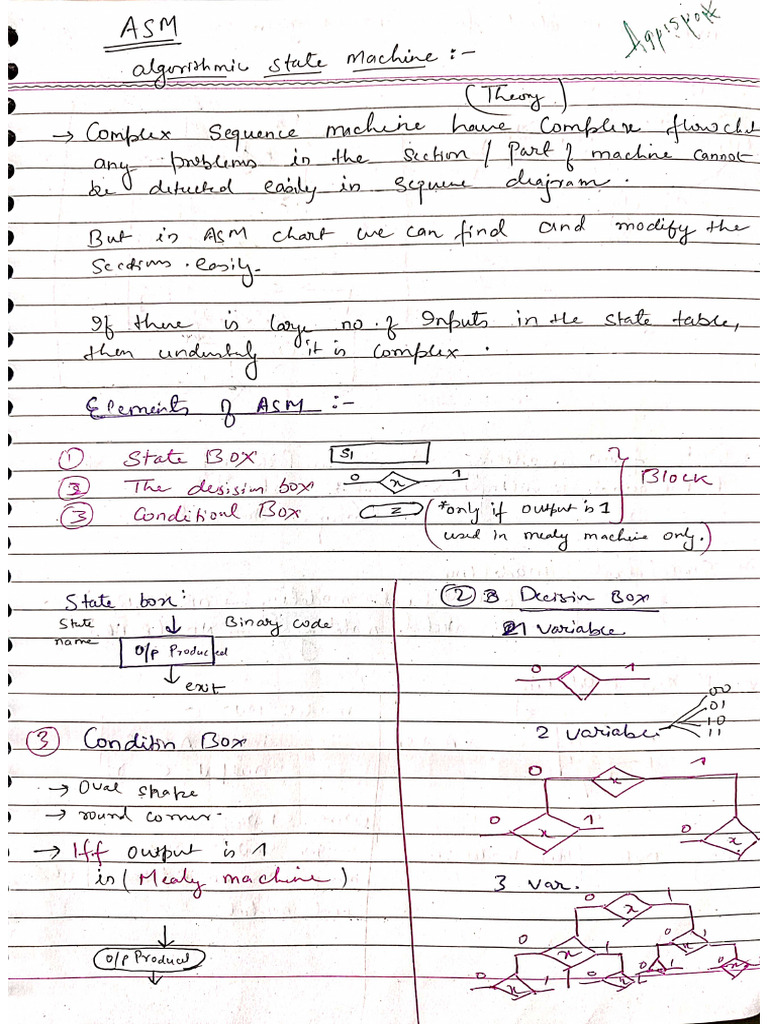 ASM
algorithmic state machine :-
(Theory)
→ Complex sequence machine have complex flowchat
any problems in the section / part of machine cannot
be detected easily in sequence diagram.
But in ASM chart we can find and modify the
sections easily.
If there is large no. of Inputs in the state table,
then it is complex.
Elements of ASM :-
① State Box S1
② The desision box 0 x 1
③ Conditional Box z (*only if output is 1
used in mealy machine only.)
Block
State box:
State name
Binary code
O/p Produced
exit
③ Condition Box
→ Oval shape
→ round corner
→ Iff output is 1
is (Mealy machine)
O/p Produced
② Decision Box
1 variable
0 1
2 variable
00
01
10
11
0 x 1
0 x 1
0 x
3 var.
0 x 1
0 x 1 0 x 1
0 x 1 0 x 1 x